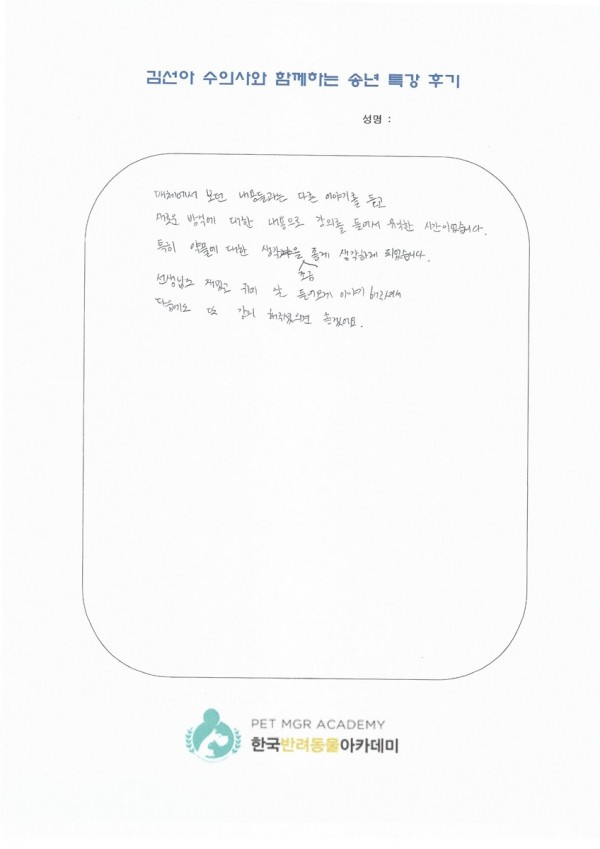 김선아 수의사와 함께하는 송년 특강 후기
성명 :
매체에서 보던 내용들과는 다른 이야기를 듣고
새로운 방식에 대한 내용으로 강의를 들어서 유익한 시간이었습니다.
특히 약물에 대한 생각을 좋게 생각하게 되었습니다.
조금
선생님도 재밌고 귀에 잘 들어오게 이야기 해주셔서
다음에도 또 강의 해주셨으면 좋겠어요.
PET MGR ACADEMY
한국반려동물아카데미